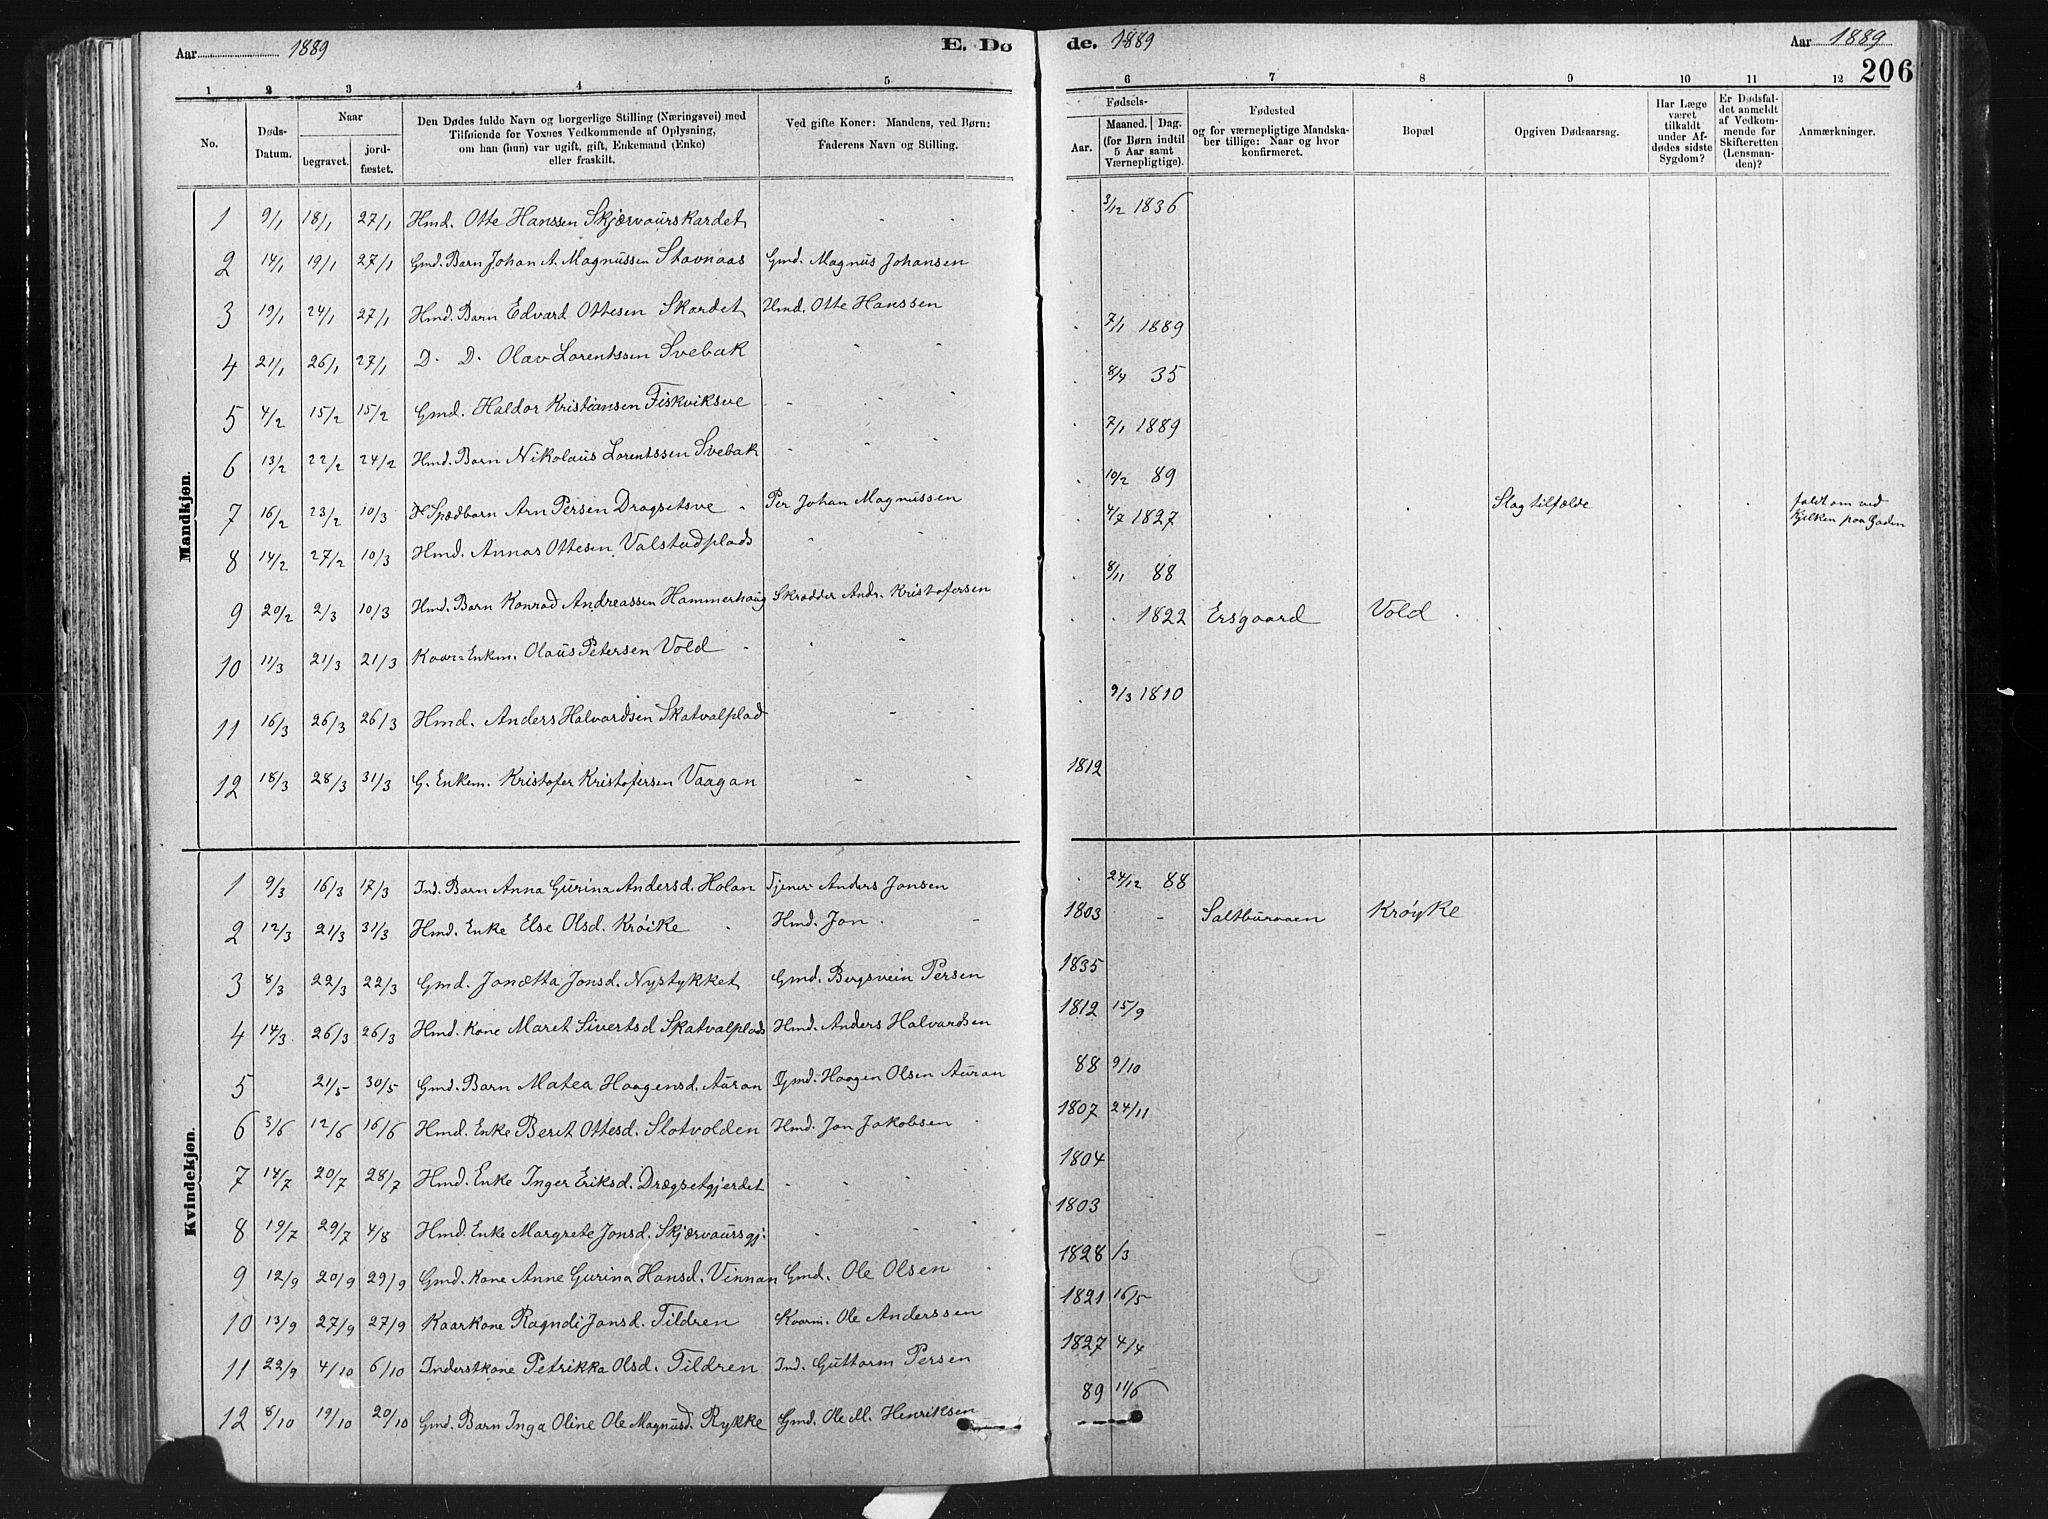 Aar 1889 E. Dø de. 1889 Aar 1889
206
1 2 3 4 5 6 7 8 9 10 11 12
No.
Døds-Datum.
Naar
begravet.
jord-fæstet.
Den Dødes fulde Navn og borgerlige Stilling (Næringsvei) med
Tilføiende for Voxnes Vedkommende af Oplysning,
om han (hun) var ugift, gift, Enkemand (Enke)
eller fraskilt.
Ved gifte Koner: Mandens, ved Børn:
Faderens Navn og Stilling.
Fødsels-
Aar.
Maaned. Dag.
(for Børn indtil
5 Aar samt
Værnepligtige).
Fødested
og for værnepligtige Mandska-
ber tillige: Naar og hvor
konfirmeret.
Bopæl
Opgiven Dødsaarsag.
Har Læge
været
tilkaldt
under Af-
dødes sidste
Sygdom?
Er Dødsfal-
det anmeldt
af Vedkom-
mende for
Skifteretten
(Lensman-
den)?
Anmærkninger.
Mandkjøn.
1 9/1 18/1 27/1 Hmd. Otte Hanssen Skjærvaurskardet 3/12 1836
2 14/1 19/1 27/1 Gmd. Barn Johan A. Magnussen Stavnaas Gmd. Magnus Johansen
3 19/1 24/1 27/1 Hmd. Barn Edvard Ottesen Skardet Hmd. Otte Hanssen 7/1 1889
4 21/1 26/1 27/1 D. D. Olav Lorentssen Svebak 8/4 35
5 4/2 15/2 15/2 Gmd. Haldor Kristiansen Fiskviksve 7/1 1889
6 13/2 22/2 24/2 Hmd. Barn Nikolaus Lorentssen Svebak 10/2 89
7 16/2 23/2 10/3 Spædbarn Arn Persen Dragsetsve Per Johan Magnussen 4/7 1827 Slagtilfælde faldt om ved Kjelken paa Gaden
8 14/2 27/2 10/3 Hmd. Annas Ottesen Valstadplads 8/11 88
9 20/2 2/3 10/3 Hmd. Barn Konrad Andreassen Hammerhaug Skrædder Andr. Kristofersen 1822 Ersgaard Vold
10 11/3 21/3 21/3 Kaar=Enkem. Olaus Petersen Vold 9/3 1810
11 16/3 26/3 26/3 Hmd. Anders Halvardsen Skatvalplad
12 18/3 28/3 31/3 G. Enkem. Kristofer Kristofersen Vaagan 1812
Kvindekjøn.
1 9/3 16/3 17/3 Ind. Barn Anna Gurina Andersd. Holan Tjener Anders Jonsen 24/12 88
2 12/3 21/3 31/3 Hmd. Enke Else Olsd. Krøike Hmd. Jon 1803 Saltburaaen Krøyke
3 8/3 22/3 22/3 Gmd. Jonetta Jonsd. Nystykket Gmd. Bergsvein Persen 1835
4 14/3 26/3 26/3 Hmd. Kone Maret Sivertsd Skatvalplads Hmd. Anders Halvardsen 1812 15/9
5 21/5 30/5 Gmd. Barn Matea Haagensd. Auran Gmd. Haagen Olsen Auran 88 9/10
6 3/6 12/6 16/6 Hmd. Enke Berit Ottesd. Slotvolden Hmd. Jon Jakobsen 1807 24/11
7 14/7 20/7 28/7 Hmd. Enke Inger Eriksd. Drægsetgjerdet 1804
8 19/7 29/7 4/8 Hmd. Enke Margrete Jonsd. Skjærvaursgj: 1803
9 12/9 20/9 29/9 Gmd. Kone Anne Gurina Hansd. Vinnan Gmd. Ole Olsen 1828 1/3
10 13/9 27/9 27/9 Kaarkone Ragndi Jonsd. Tildren Kaarm. Ole Anderssen 1821 16/5
11 22/9 4/10 6/10 Inderstkone Petrikka Olsd. Tildren Ind. Guttorm Persen 1827 4/4
12 8/10 19/10 20/10 Gmd. Barn Inga Oline Ole Magnusd. Rykke Gmd. Ole M. Henriksen 89 11/6